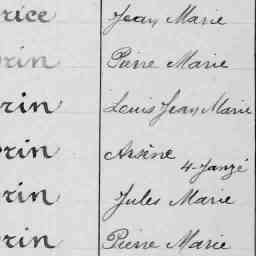 rice Jean Marie
rin Pierre Marie
rin Louis Jean Marie
rin Arsène
4-Janzé
rin Jules Marie
rin Pierre Marie